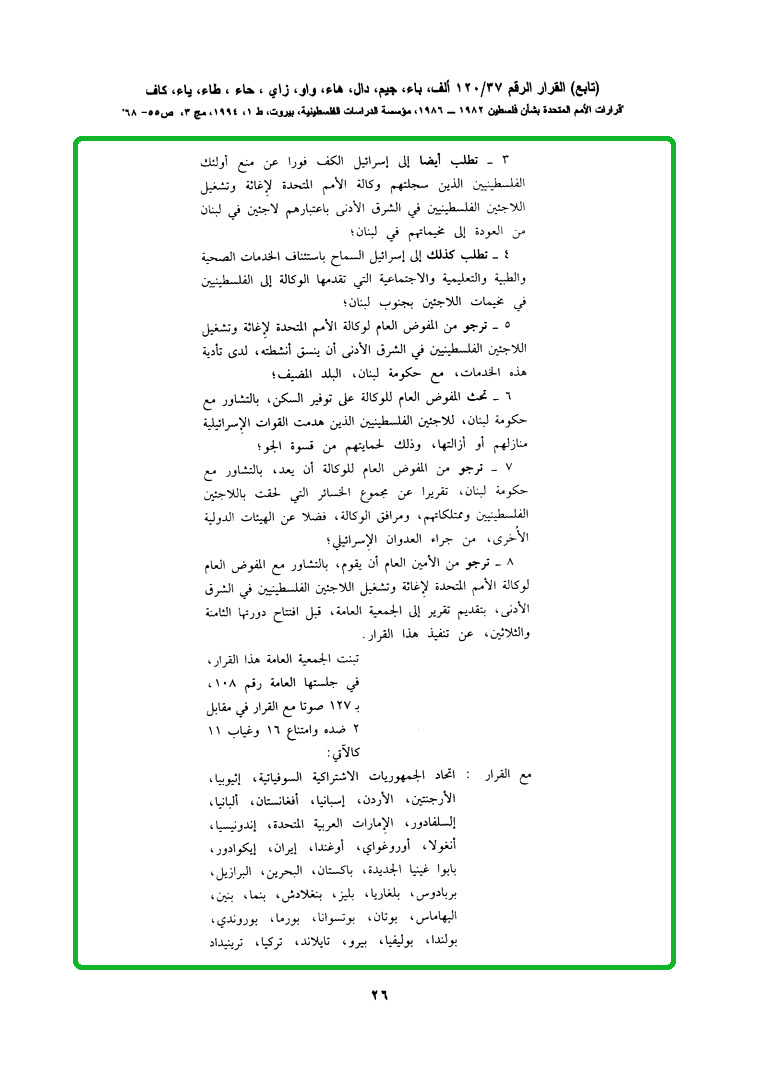 (تابع) القرار الرقم ١٢٠/٣٧ ألف، باء، جيم، دال، هاء، واو، زاي ، حاء ، طاء، ياء، كاف
"قرارات الأمم المتحدة بشأن فلسطين ١٩٨٢ ــ ١٩٨٦، مؤسسة الدراسات الفلسطينية، بيروت، ط ١، ١٩٩٤، مج ٣، ص٥٥- ٦٨"
٣ ـ تطلب أيضا إلى إسرائيل الكف فورا عن منع أولئك
الفلسطينيين الذين سجلتهم وكالة الأمم المتحدة لإغاثة وتشغيل
اللاجئين الفلسطينيين في الشرق الأدنى باعتبارهم لاجئين في لبنان
من العودة إلى مخيماتهم في لبنان؛
٤ ـ تطلب كذلك إلى إسرائيل السماح باستئناف الخدمات الصحية
والطبية والتعليمية والاجتماعية التي تقدمها الوكالة إلى الفلسطينيين
في مخيمات اللاجئين بجنوب لبنان؛
٥ ـ ترجو من المفوض العام لوكالة الأمم المتحدة لإغاثة وتشغيل
اللاجئين الفلسطينيين في الشرق الأدنى أن ينسق أنشطته، لدى تأدية
هذه الخدمات، مع حكومة لبنان، البلد المضيف؛
٦ ـ تحث المفوض العام للوكالة على توفير السكن، بالتشاور مع
حكومة لبنان، للاجئين الفلسطينيين الذين هدمت القوات الإسرائيلية
منازلهم أو أزالتها، وذلك لحمايتهم من قسوة الجو؛
٧ ـ ترجو من المفوض العام للوكالة أن يعد، بالتشاور مع
حكومة لبنان، تقريرا عن مجموع الخسائر التي لحقت باللاجئين
الفلسطينيين وممتلكاتهم، ومرافق الوكالة، فضلا عن الهيئات الدولية
الأخرى، من جراء العدوان الإسرائيلي؛
٨ ـ ترجو من الأمين العام أن يقوم، بالتشاور مع المفوض العام
لوكالة الأمم المتحدة لإغاثة وتشغيل اللاجئين الفلسطينيين في الشرق
الأدنى، بتقديم تقرير إلى الجمعية العامة، قبل افتتاح دورتها الثامنة
والثلاثين، عن تنفيذ هذا القرار.
تبنت الجمعية العامة هذا القرار،
في جلستها العامة رقم ١٠٨،
بـ ١٢٧ صوتا مع القرار في مقابل
٢ ضده وامتناع ١٦ وغياب ١١
كالآتي:
مع القرار : اتحاد الجمهوريات الاشتراكية السوفياتية، إثيوبيا،
الأرجنتين، الأردن، إسبانيا، أفغانستان، ألبانيا،
إلسلفادور، الإمارات العربية المتحدة، إندونيسيا،
أنغولا، أوروغواي، أوغندا، إيران، إيكوادور،
بابوا غينيا الجديدة، باكستان، البحرين، البرازيل،
بربادوس، بلغاريا، بليز، بنغلادش، بنما، بنين،
البهاماس، بوتان، بوتسوانا، بورما، بوروندي،
بولندا، بوليفيا، بيرو، تايلاند، تركيا، ترينيداد
٢٦